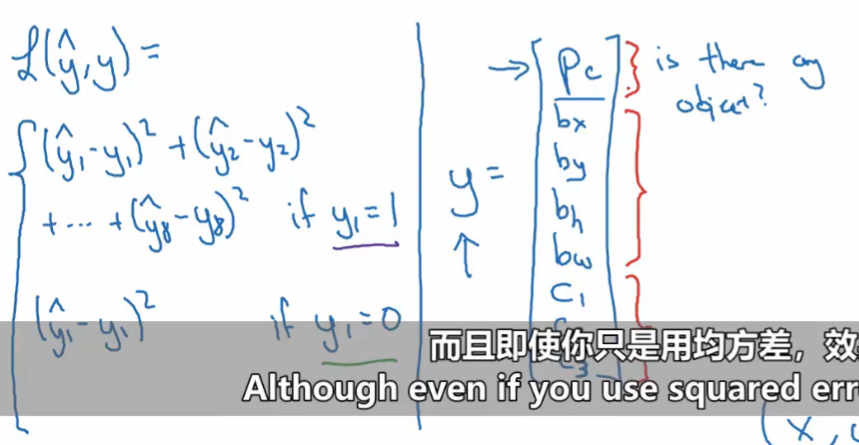 ℒ(ŷ,y)=
(ŷ₁-y₁)² +(ŷ₂-y₂)²
+⋯ +(ŷ₈-y₈)² if y₁=1
(ŷ₁-y₁)² if y₁=0
y=
→
Pc
bx
by
bh
bw
C₁
is there any
object?
而且即使你只是用均方差，效
Although even if you use squared err
(x,